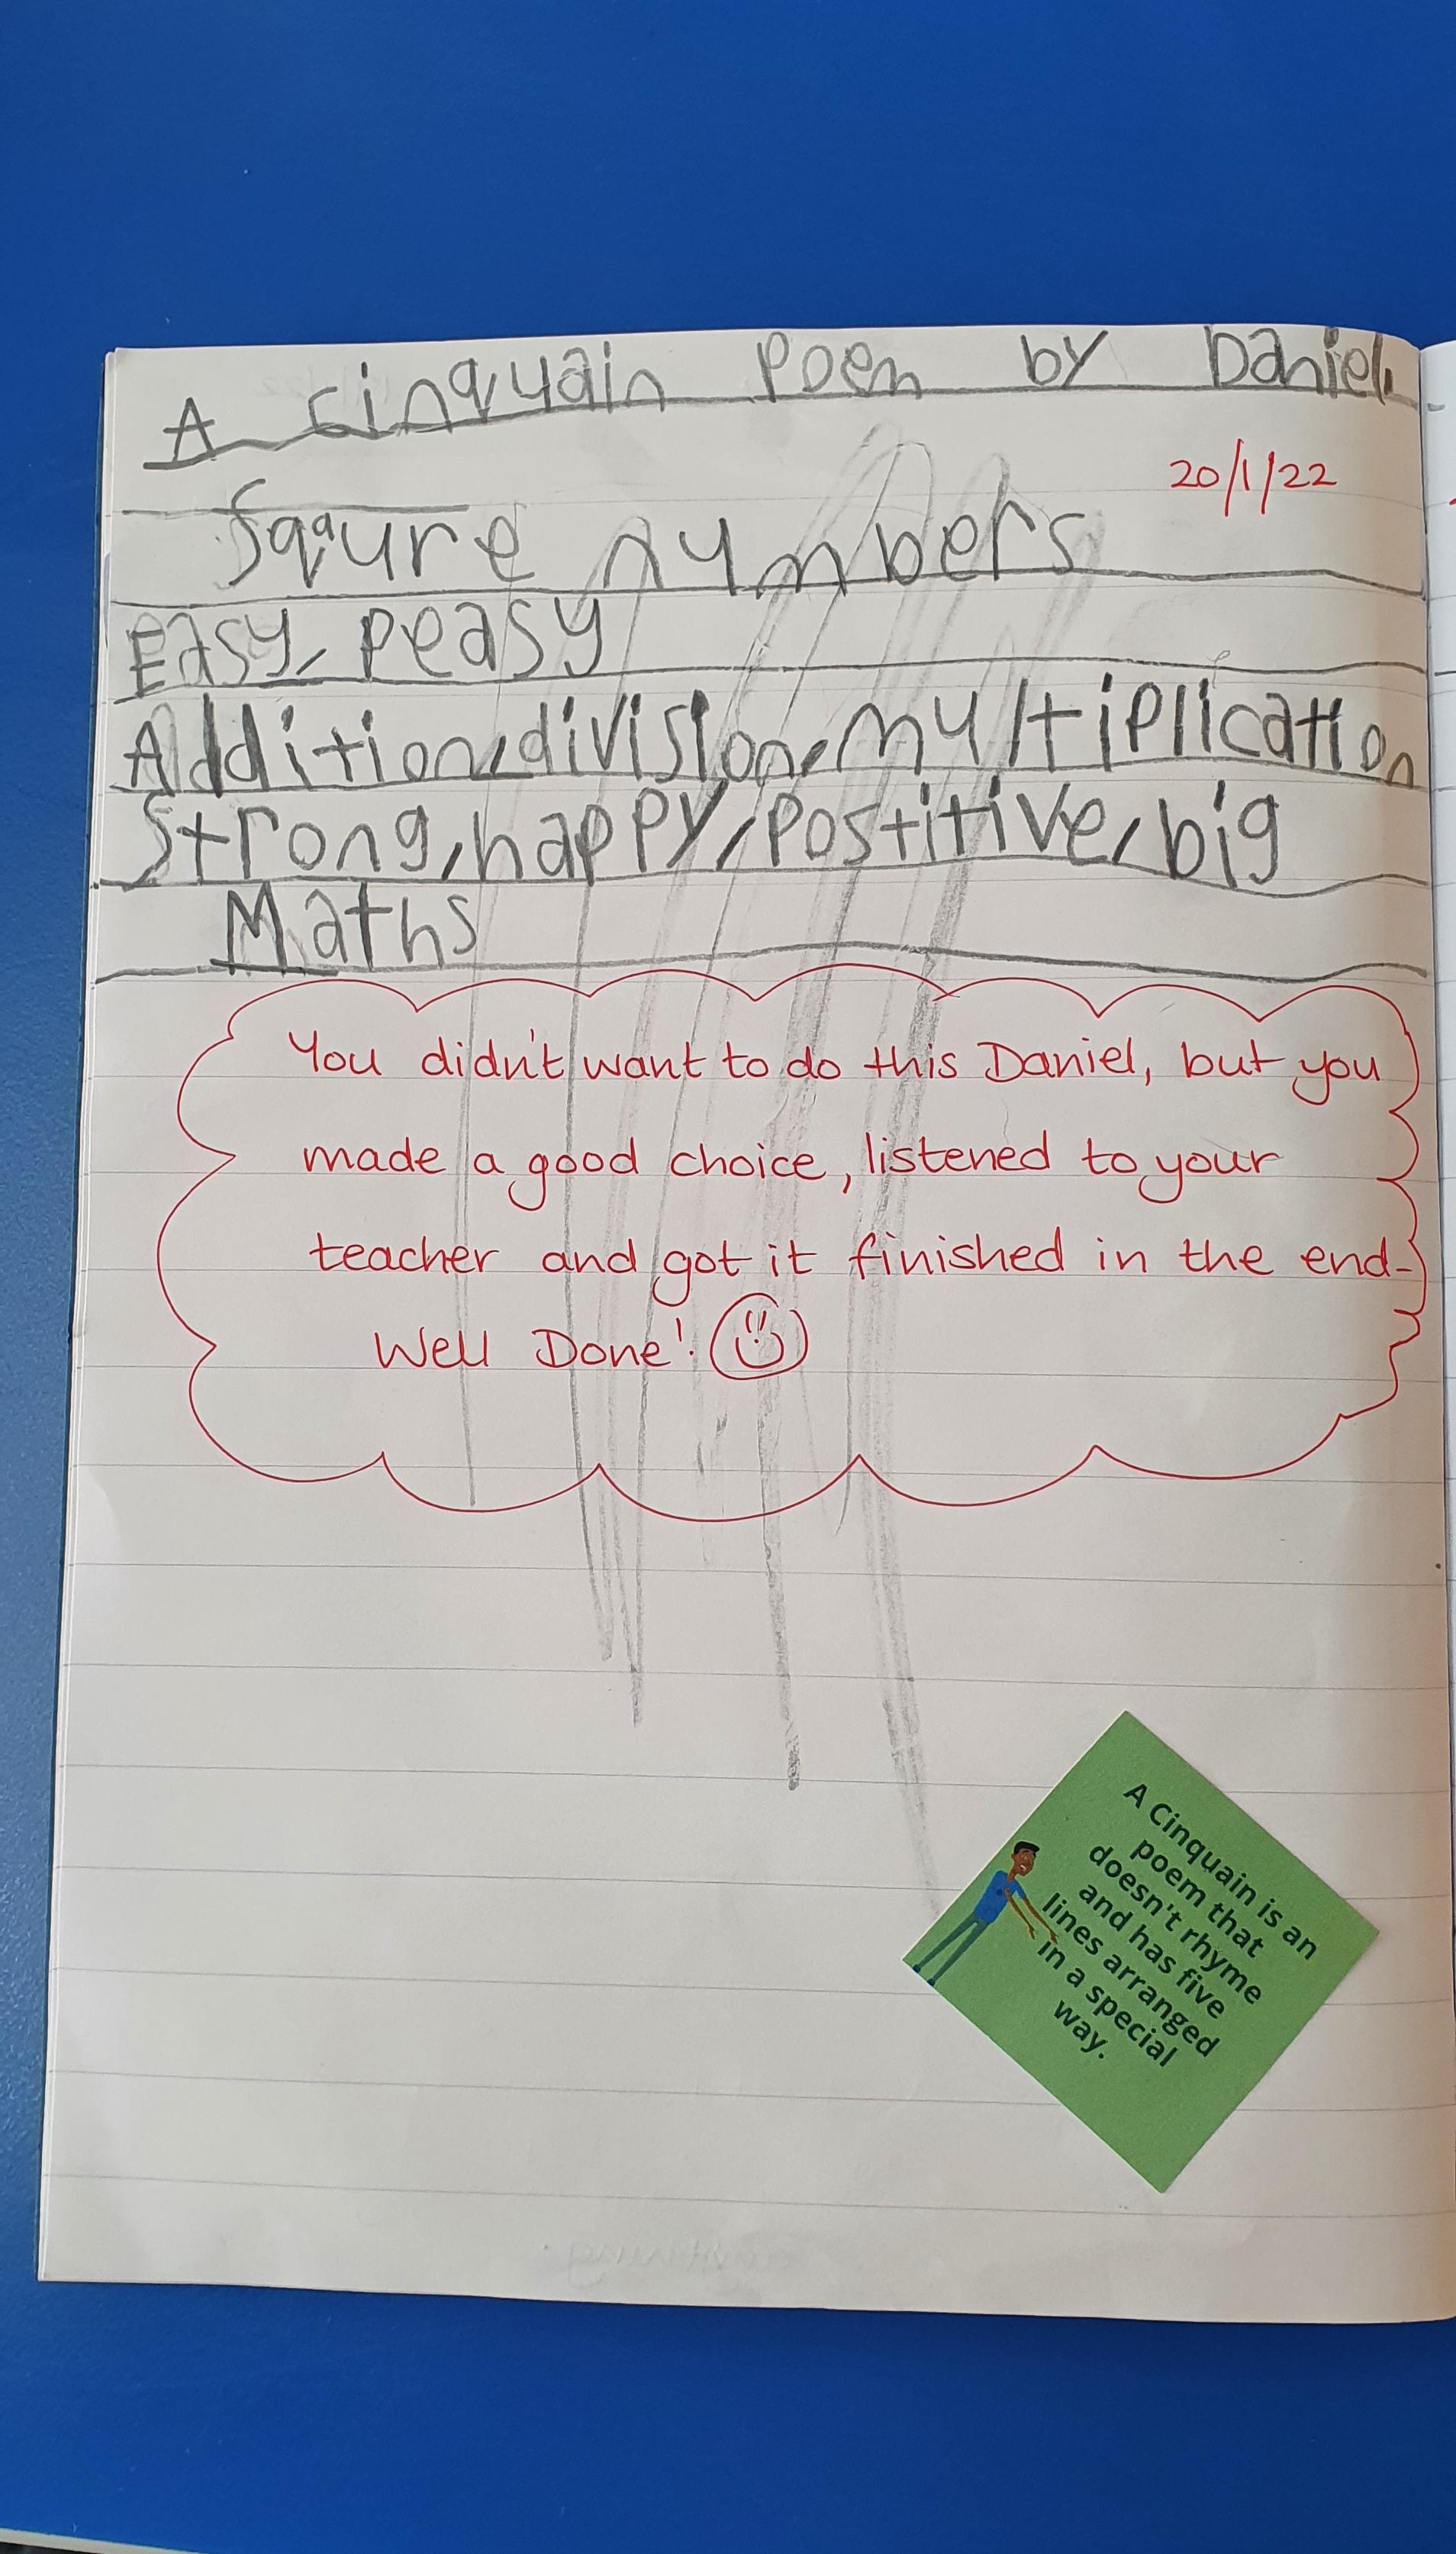 A cinquain Poem by Daniel.
20/1/22
Sqaure numbers
Easy, peasy
Addition, division, multiplication
Strong, happy, postitive, big
Maths
You didn't want to do this Daniel, but you
made a good choice, listened to your
teacher and got it finished in the end-
Well Done!
A Cinquain is an
poem that
doesn't rhyme
and has five
lines arranged
in a special
way.